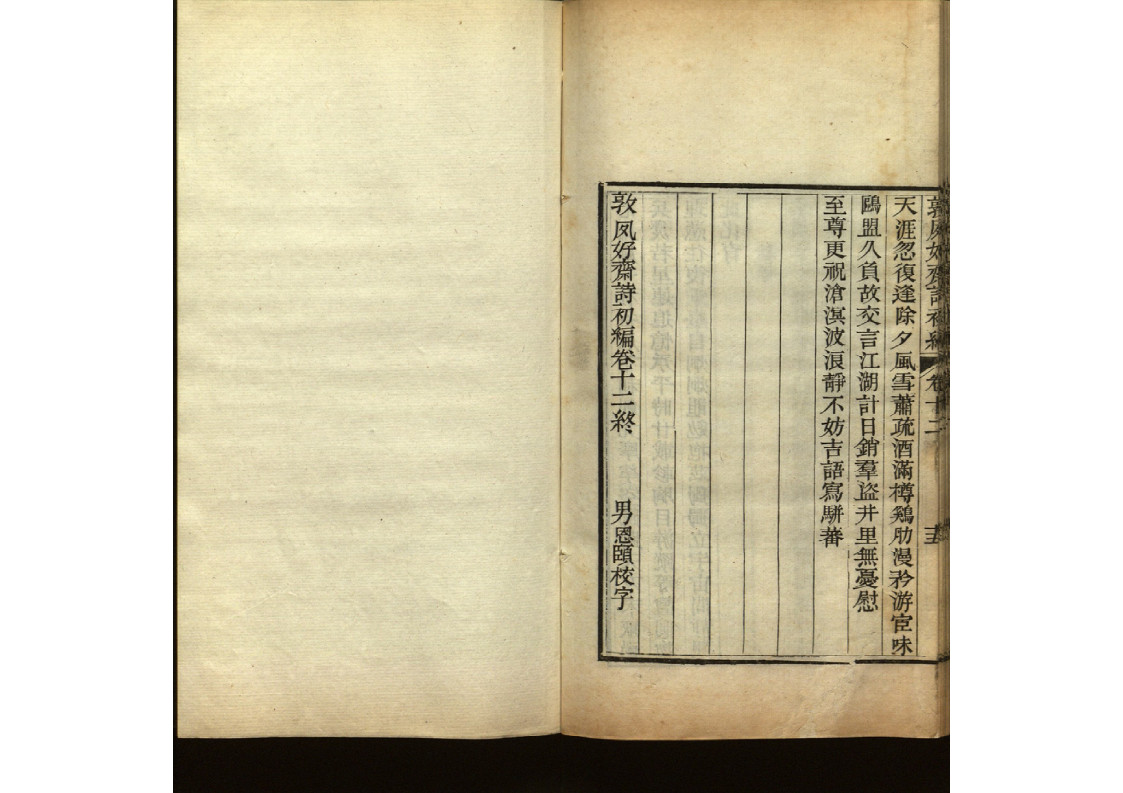 敦夙好齋詩初編 卷十二 十五
天涯忽復逢除夕風雪蕭疏酒滿樽鷄肋漫矜游宦味
鷗盟久負故交言江湖計日銷羣盜井里無憂慰
至尊更祝滄溟波浪靜不妨吉語寫駢蕃
敦夙好齋詩初編卷十二終 男恩頤校字